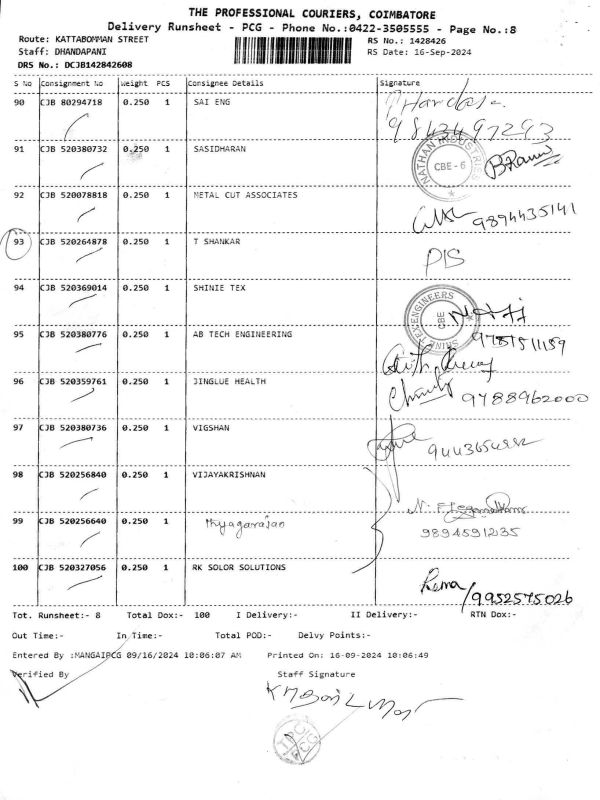 THE PROFESSIONAL COURIERS, COIMBATORE
Delivery Runsheet - PCG - Phone No.:0422-3505555 - Page No.:8
Route: KATTABOMMAN STREET RS No.: 1428426
Staff: DHANDAPANI RS Date: 16-Sep-2024
DRS No.: DCJB142842608
S No Consignment No Weight PCS Consignee Details Signature
90 CJB 80294718 0.250 1 SAI ENG
9843497293
91 CJB 520380732 0.250 1 SASIDHARAN
NATHAN INDUSTRIES CBE - 6
92 CJB 520078818 0.250 1 METAL CUT ASSOCIATES
9894435141
93 CJB 520264878 0.250 1 T SHANKAR
PIS
94 CJB 520369014 0.250 1 SHINIE TEX
CBE
95 CJB 520380776 0.250 1 AB TECH ENGINEERING
96 CJB 520359761 0.250 1 JINGLUE HEALTH
9788962000
97 CJB 520380736 0.250 1 VIGSHAN
98 CJB 520256840 0.250 1 VIJAYAKRISHNAN
99 CJB 520256640 0.250 1 Thyagarajan
9894591235
100 CJB 520327056 0.250 1 RK SOLOR SOLUTIONS
9952575026
Tot. Runsheet:- 8 Total Dox:- 100 I Delivery:- II Delivery:- RTN Dox:-
Out Time:- In Time:- Total POD:- Delvy Points:-
Entered By :MANGAIPCG 09/16/2024 10:06:07 AM Printed On: 16-09-2024 10:06:49
Verified By Staff Signature